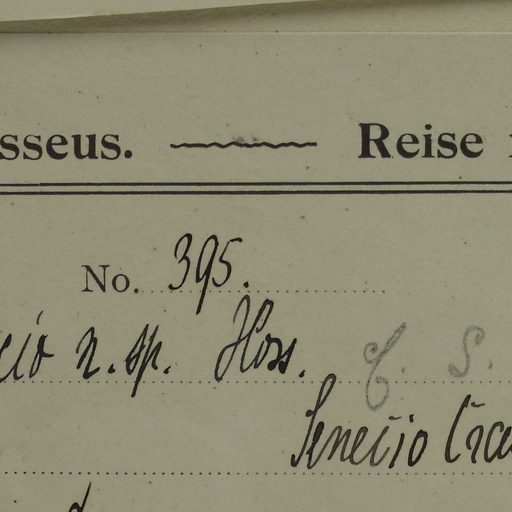 sseus. Reise
No. 395.
cio n. sp. Hoss.
Senecio Cra